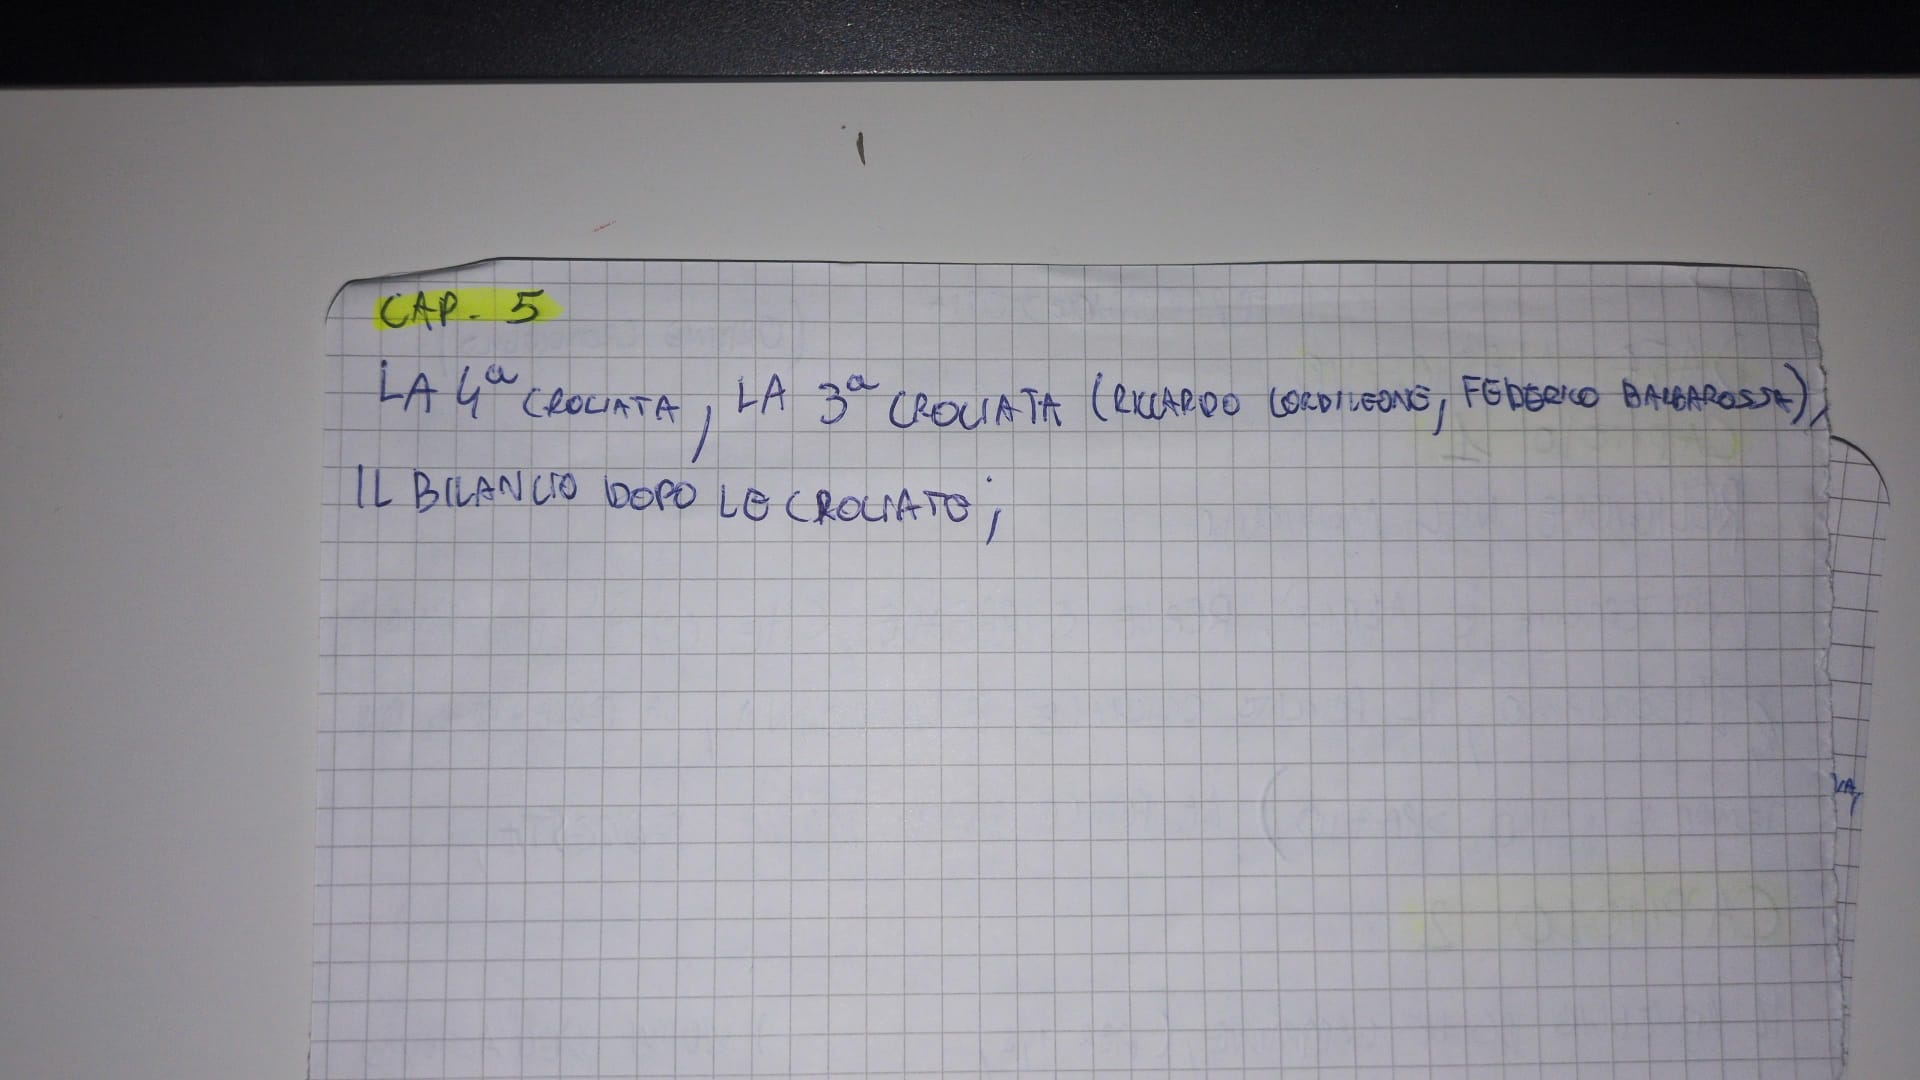 CAP. 5
LA 4ª CROCIATA, LA 3ª CROCIATA (RICCARDO CORDILEONE, FEDERICO BARBAROSSA),
IL BILANCIO DOPO LE CROCIATE;